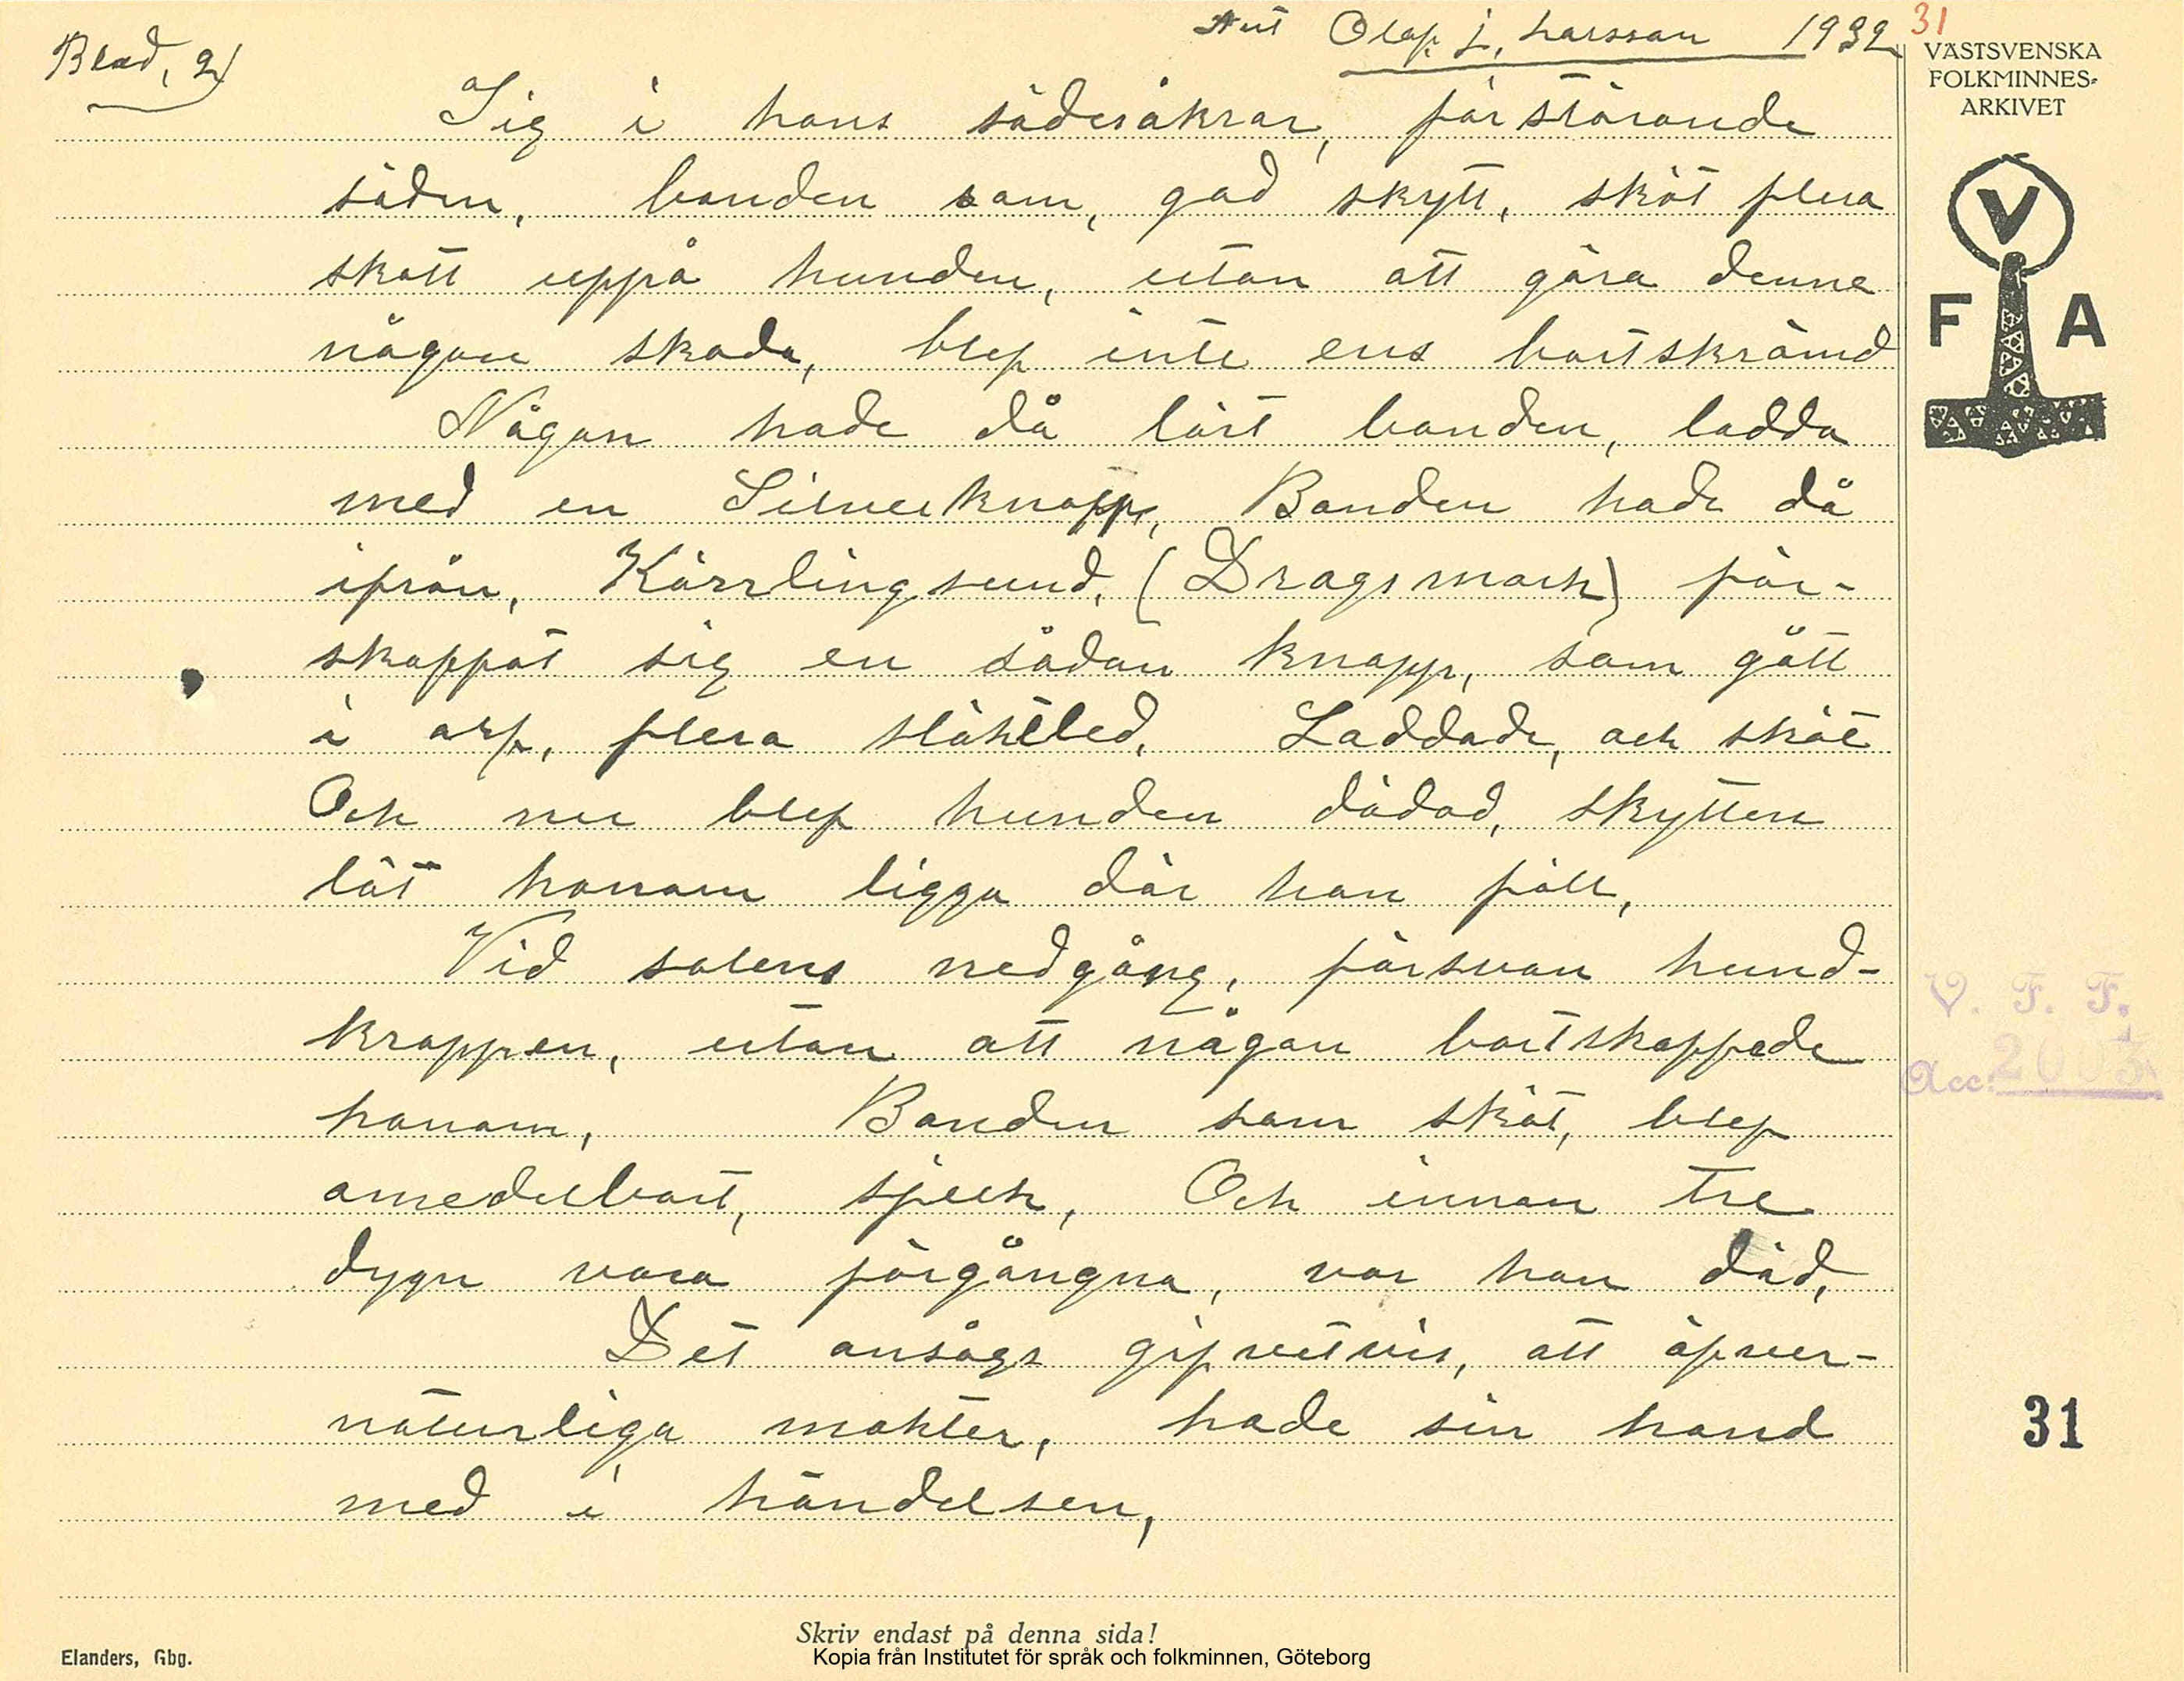 Ant Olof J, Larsson 1932 31
Blad, 2)
VÄSTSVENSKA
FOLKMINNES-
ARKIVET
Sig i hans sädesåkrar, förstörande
säden, bonden som, god skytt, sköt flera
skott uppå hunden, utan att göra denne
någon skada, blef inte ens bortskrämd
Någon hade då lärt bonden, ladda
med en Silverknapp, Bonden hade då
ifrån, Kärrlingsund, (Dragsmark) för-
skaffat sig en sådan knapp, som gått
i arf, flera släktled, Laddade, och sköt
Och nu blef hunden dödad, skytten
lät honom ligga där han föll,
Vid solens nedgång, försvan hund-
kroppen, utan att någon bortskaffade
honom, Bonden som sköt, blef
omedelbart, sjuk, Och innan tre
dygn vora förgångna, var han död,
Det ansågs gifvetvis, att öfver-
naturliga makter, hade sin hand
med i händelsen,
V
F A
V. F. F.
Acc: 2003
31
Skriv endast på denna sida!
Elanders, Gbg.
Kopia från Institutet för språk och folkminnen, Göteborg